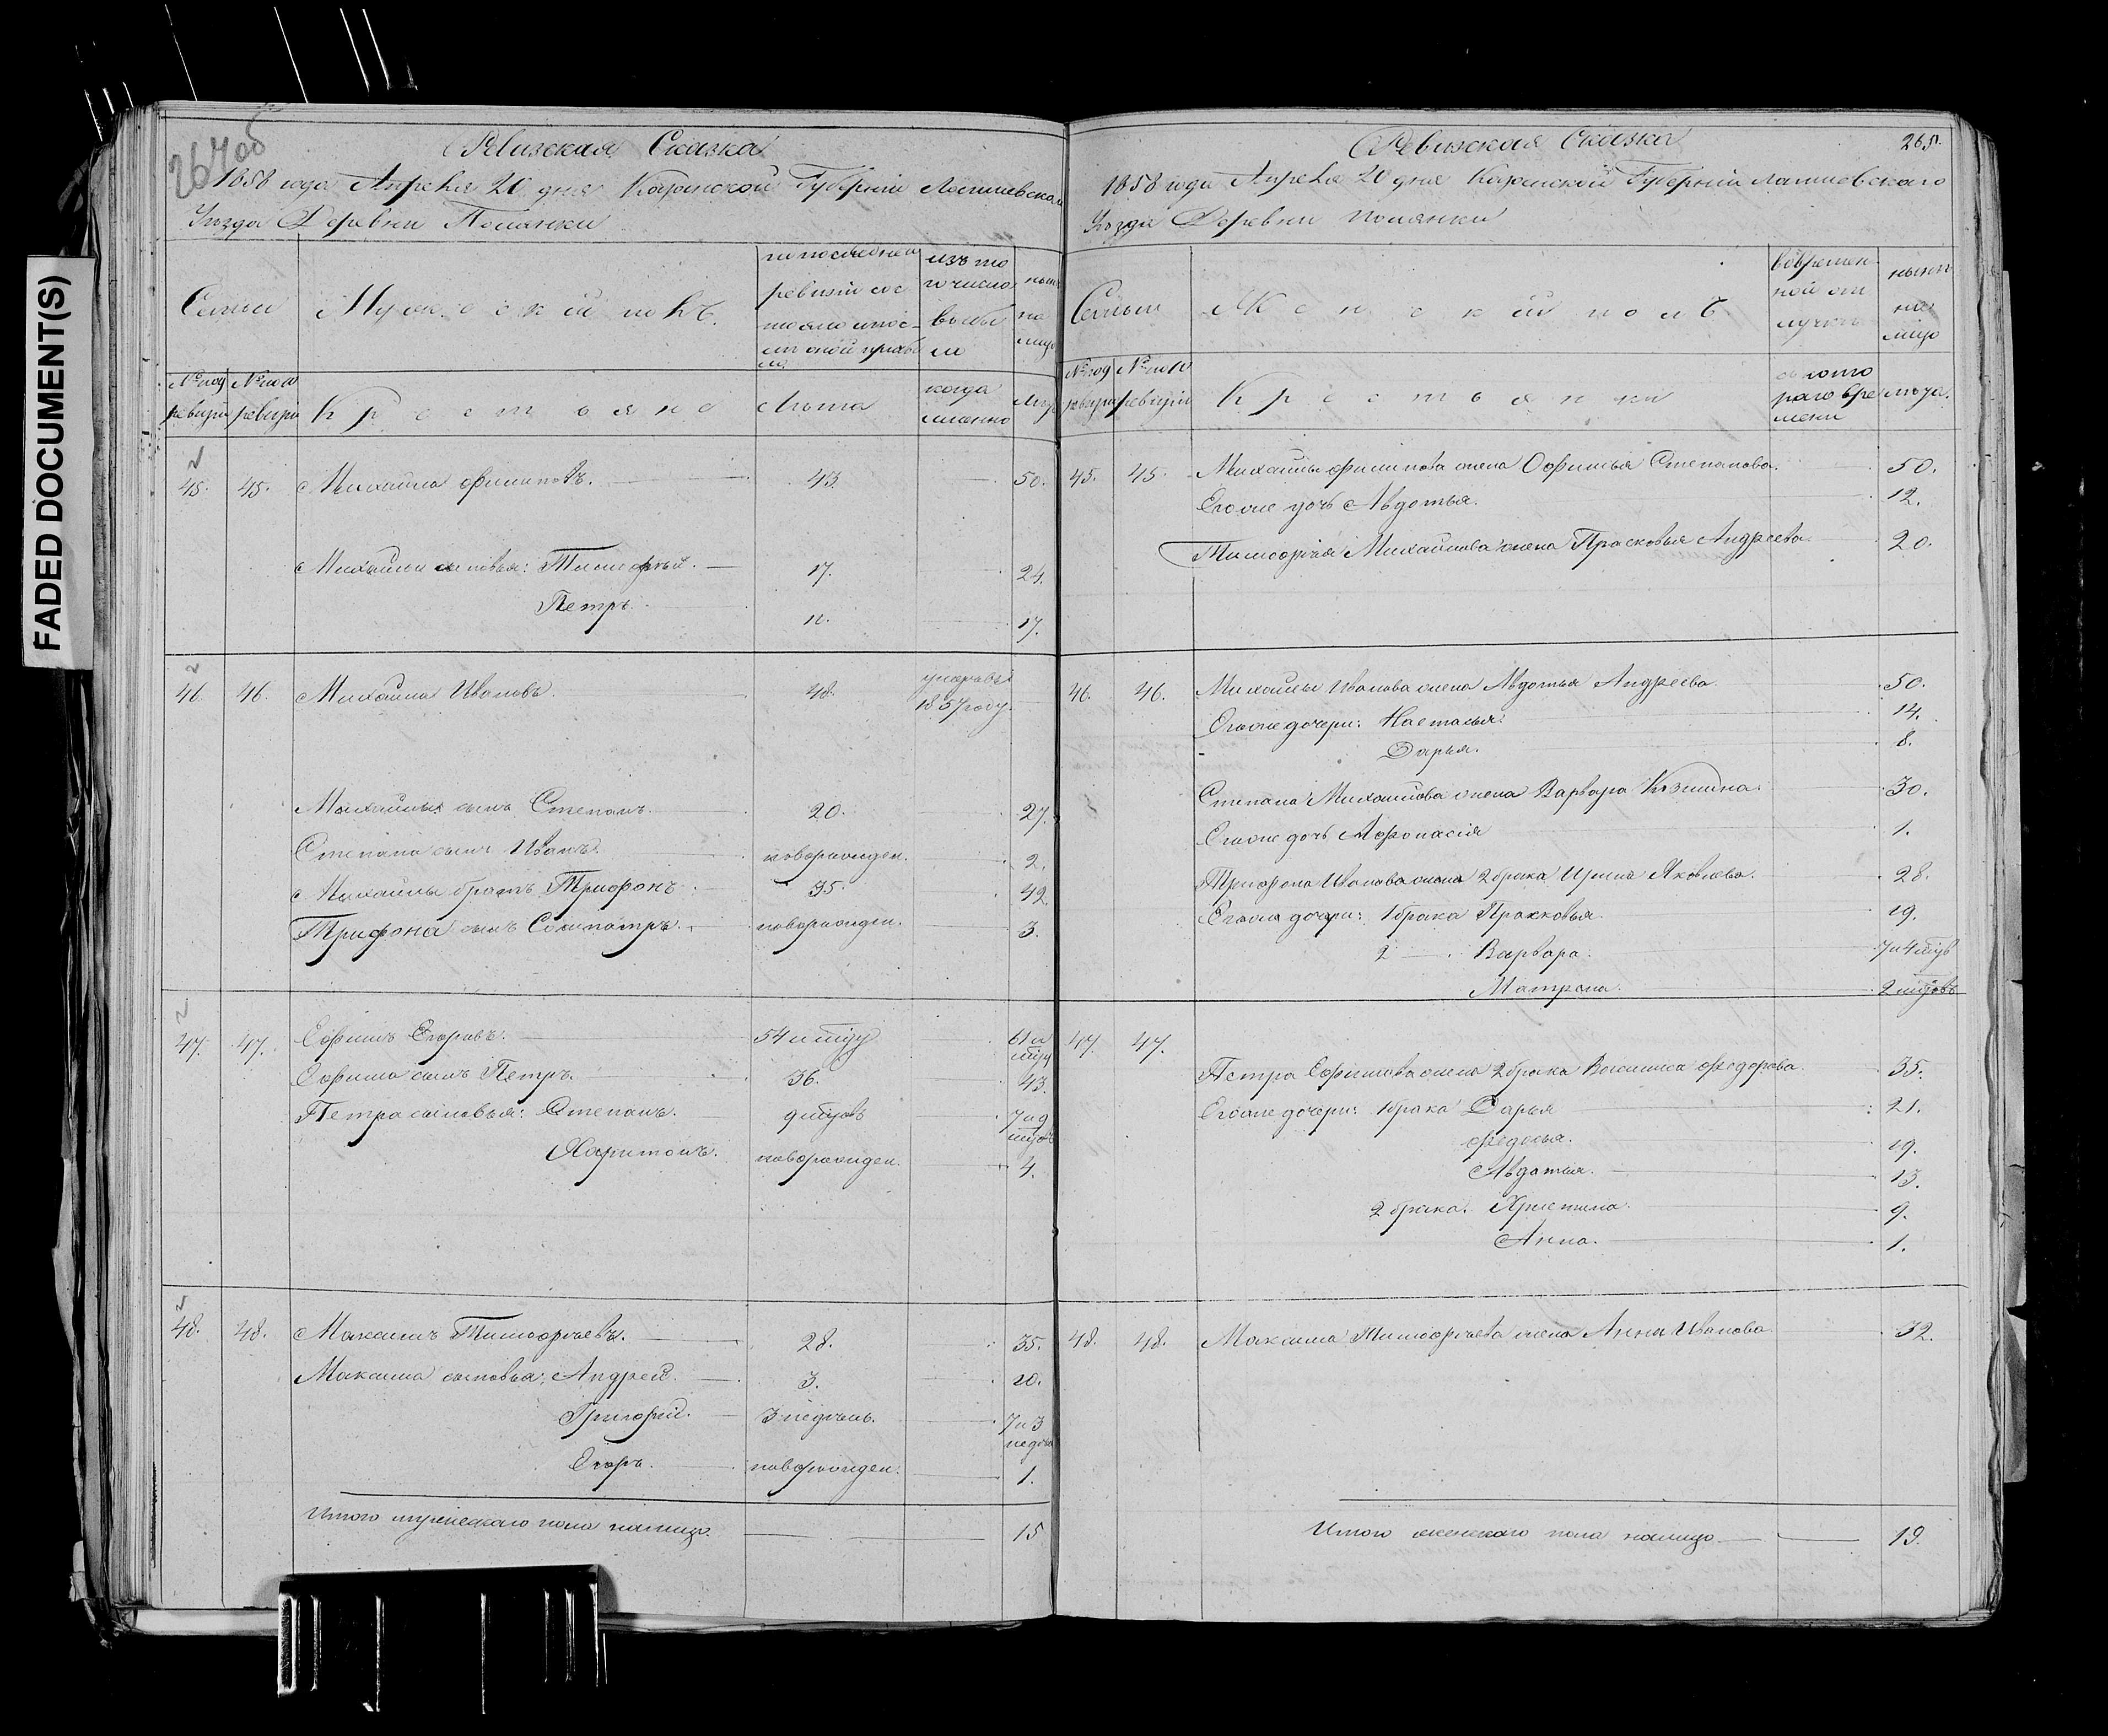 FADED DOCUMENT(S)
267об
Ревизская Сказка
1858 года Апреля 20 дня Казанской Губерніи Лаишевскаго
Уезда Деревни Полянки
Семьи
Мужескій полъ.
по последней
ревизіи сос
тояло и пос-
ле оной прибы
ло
изъ то
го числа
выбы
ло
ныне
на
лицо
№ под
ревизіи
№ по 10
ревизіи
Крестьяне
Лета
когда
именно
Лета
45. 45. Михайла Филиповъ. 43. 50.
Михайлы сыновья: Тимофей. 17. 24.
Петръ. 11. 17.
46. 46. Михайла Ивановъ. 48. умеръ въ
1857 году.
Михайлы сынъ Степанъ. 20. 27.
Степана сынъ Иванъ. новорожден. 2.
Михайлы братъ Трифонъ. 35. 42.
Трифона сынъ Сосипатръ. новорожден. 3.
47. 47. Ефимъ Егоровъ. 54
61 и
Ефима сынъ Петръ. 36. 43.
Петра сыновья: Степанъ.
7 и 9
Харитонъ. новорожден. 4.
48. 48. Максимъ Тимофеевъ. 28. 35.
Максима сыновья: Андрей. 3. 10.
Григорій. 3 недель. 7 и 3
недель
Егоръ. новорожден. 1.
Итого мужескаго пола налицо. 15
Ревизская Сказка 265.
1858 года Апреля 20 дня Казанской Губерніи Лаишевскаго
Уезда Деревни Полянки
Семьи
Женскій полъ
во времен
ной от
лучке
ныне
на
лицо
№ под
ревизіи
№ по 10
ревизіи
Крестьянки
съ кото
раго вре
мени
лета.
45. 45. Михайлы Филипова жена Офимья Степанова. 50.
Его же дочь Авдотья. 12.
Тимофея Михайлова жена Прасковья Андреева. 20.
46. 46. Михайлы Иванова жена Авдотья Андреева. 50.
Его же дочери: Наталья. 14.
Дарья. 8.
Степана Михайлова жена Варвара Козмина. 30.
Его же дочь Афонасія 1.
Трифона Иванова жена 2 брака Ирина Яковлева. 28.
Его же дочери: 1 брака Прасковья. 19.
2 Варвара. 7 и 4
Матрена. 2
47. 47.
Петра Ефимова жена 2 брака Василиса Федорова. 35.
Его же дочери: 1 брака Дарья 21.
Федосья. 19.
Авдотья. 13.
2 брака. Христина. 9.
Анна. 1.
48. 48. Максима Тимофеева жена Анна Иванова 32.
Итого женскаго пола налицо 19.